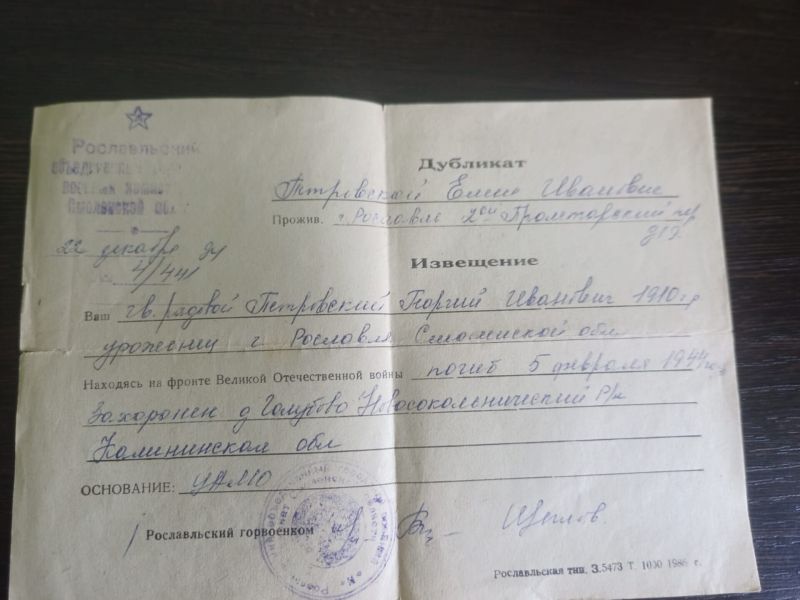 Рославльский
военный
Смоленской обл
22 декабря
4/441
Дубликат
Петровской Елене Ивановне
Прожив. г. Рославль 2ой Пролетарский пер
Извещение
Ваш гв. рядовой Петровский Георгий Иванович 1910 г.р
урожениц г. Рославля Смоленской обл
Находясь на фронте Великой Отечественной войны погиб 5 февраля 1944 года
Захоронен д Голубово Новосокольнический р/н
Калининская обл
ОСНОВАНИЕ: ЦАМО
Рославльский горвоенком
Щеглов.
Рославльская тип. З.5473 Т. 1000 1986 г.